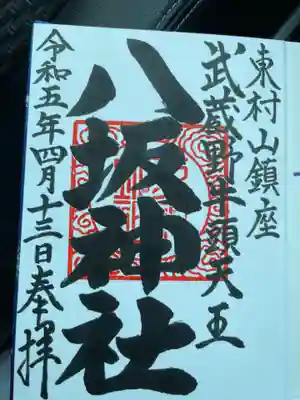 東村山鎮座
武蔵野牛頭天王
八坂神社
令和五年四月十三日奉拝